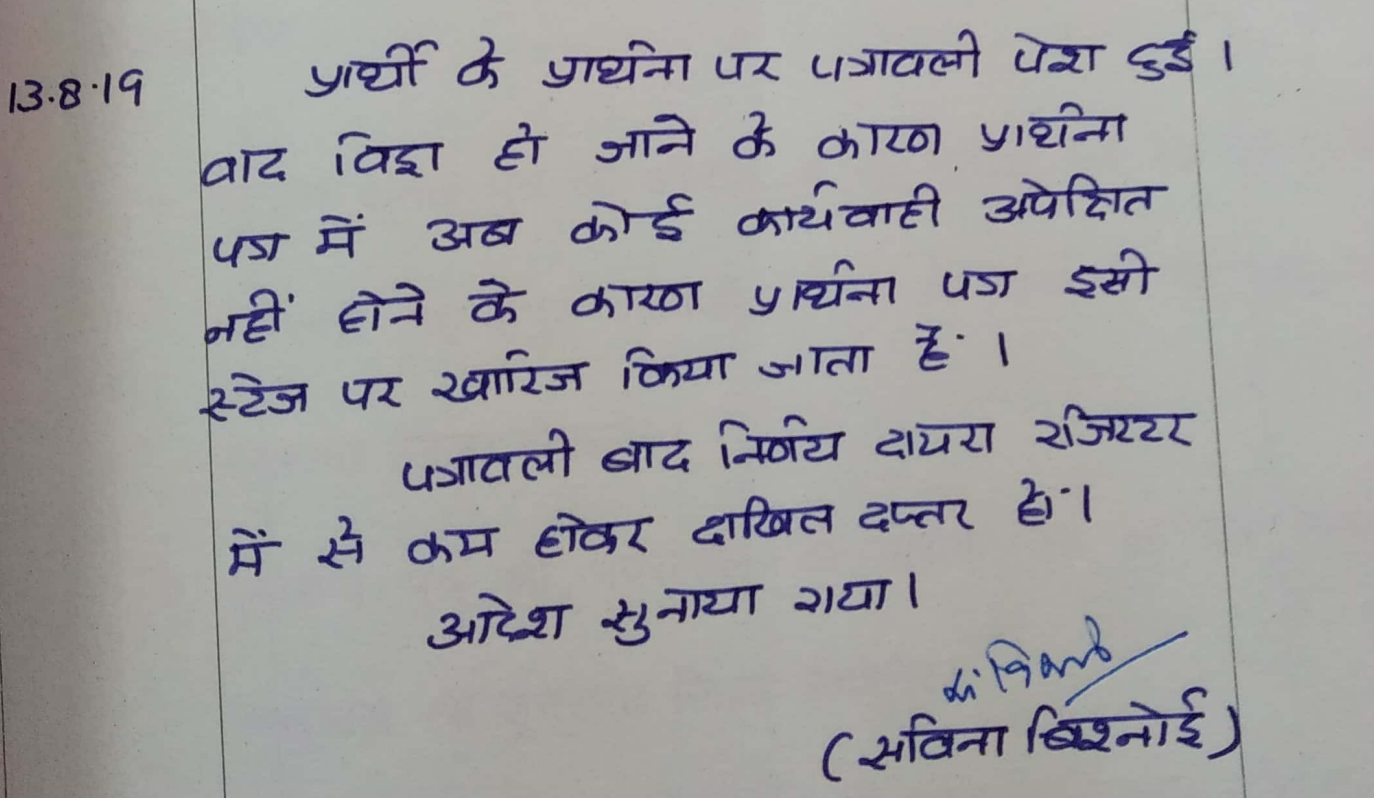 13.8.19 प्रार्थी के प्रार्थना पर पत्रावली पेश हुई।
वाद विड्रा हो जाने के कारण प्रार्थना
पत्र में अब कोई कार्यवाही अपेक्षित
नहीं होने के कारण प्रार्थना पत्र इसी
स्टेज पर खारिज किया जाता है।
पत्रावली बाद निर्णय दायरा रजिस्टर
में से कम होकर दाखिल दफ्तर हो।
आदेश सुनाया गया।
(सविना बिश्नोई)